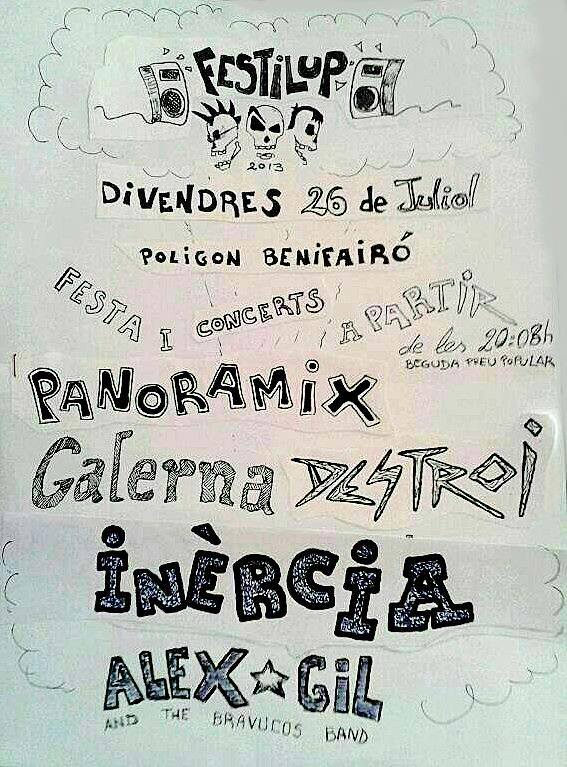 FESTILUP
2013
DiVENDRES 26 de Juliol
POLiGON BENiFAiRÓ
FESTA I CONCERTS A PARTiR
de les 20:08h
BEGUDA PREU POPULAR
PANORAMiX
Galerna DESTROi
iNÈRCiA
ALEX GiL
AND THE BRAVUCOS BAND